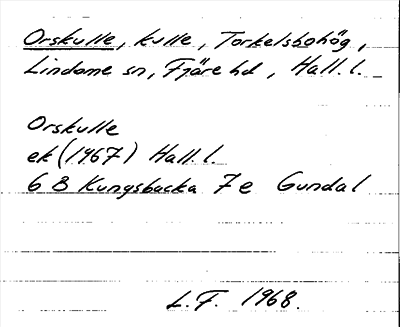 Orskulle, kulle, Torkelsbohög,
Lindome sn, Fjäre hd, Hall. l.
Orskulle
ek (1967) Hall. l.
6 B Kungsbacka 7e Gundal
L.F. 1968.